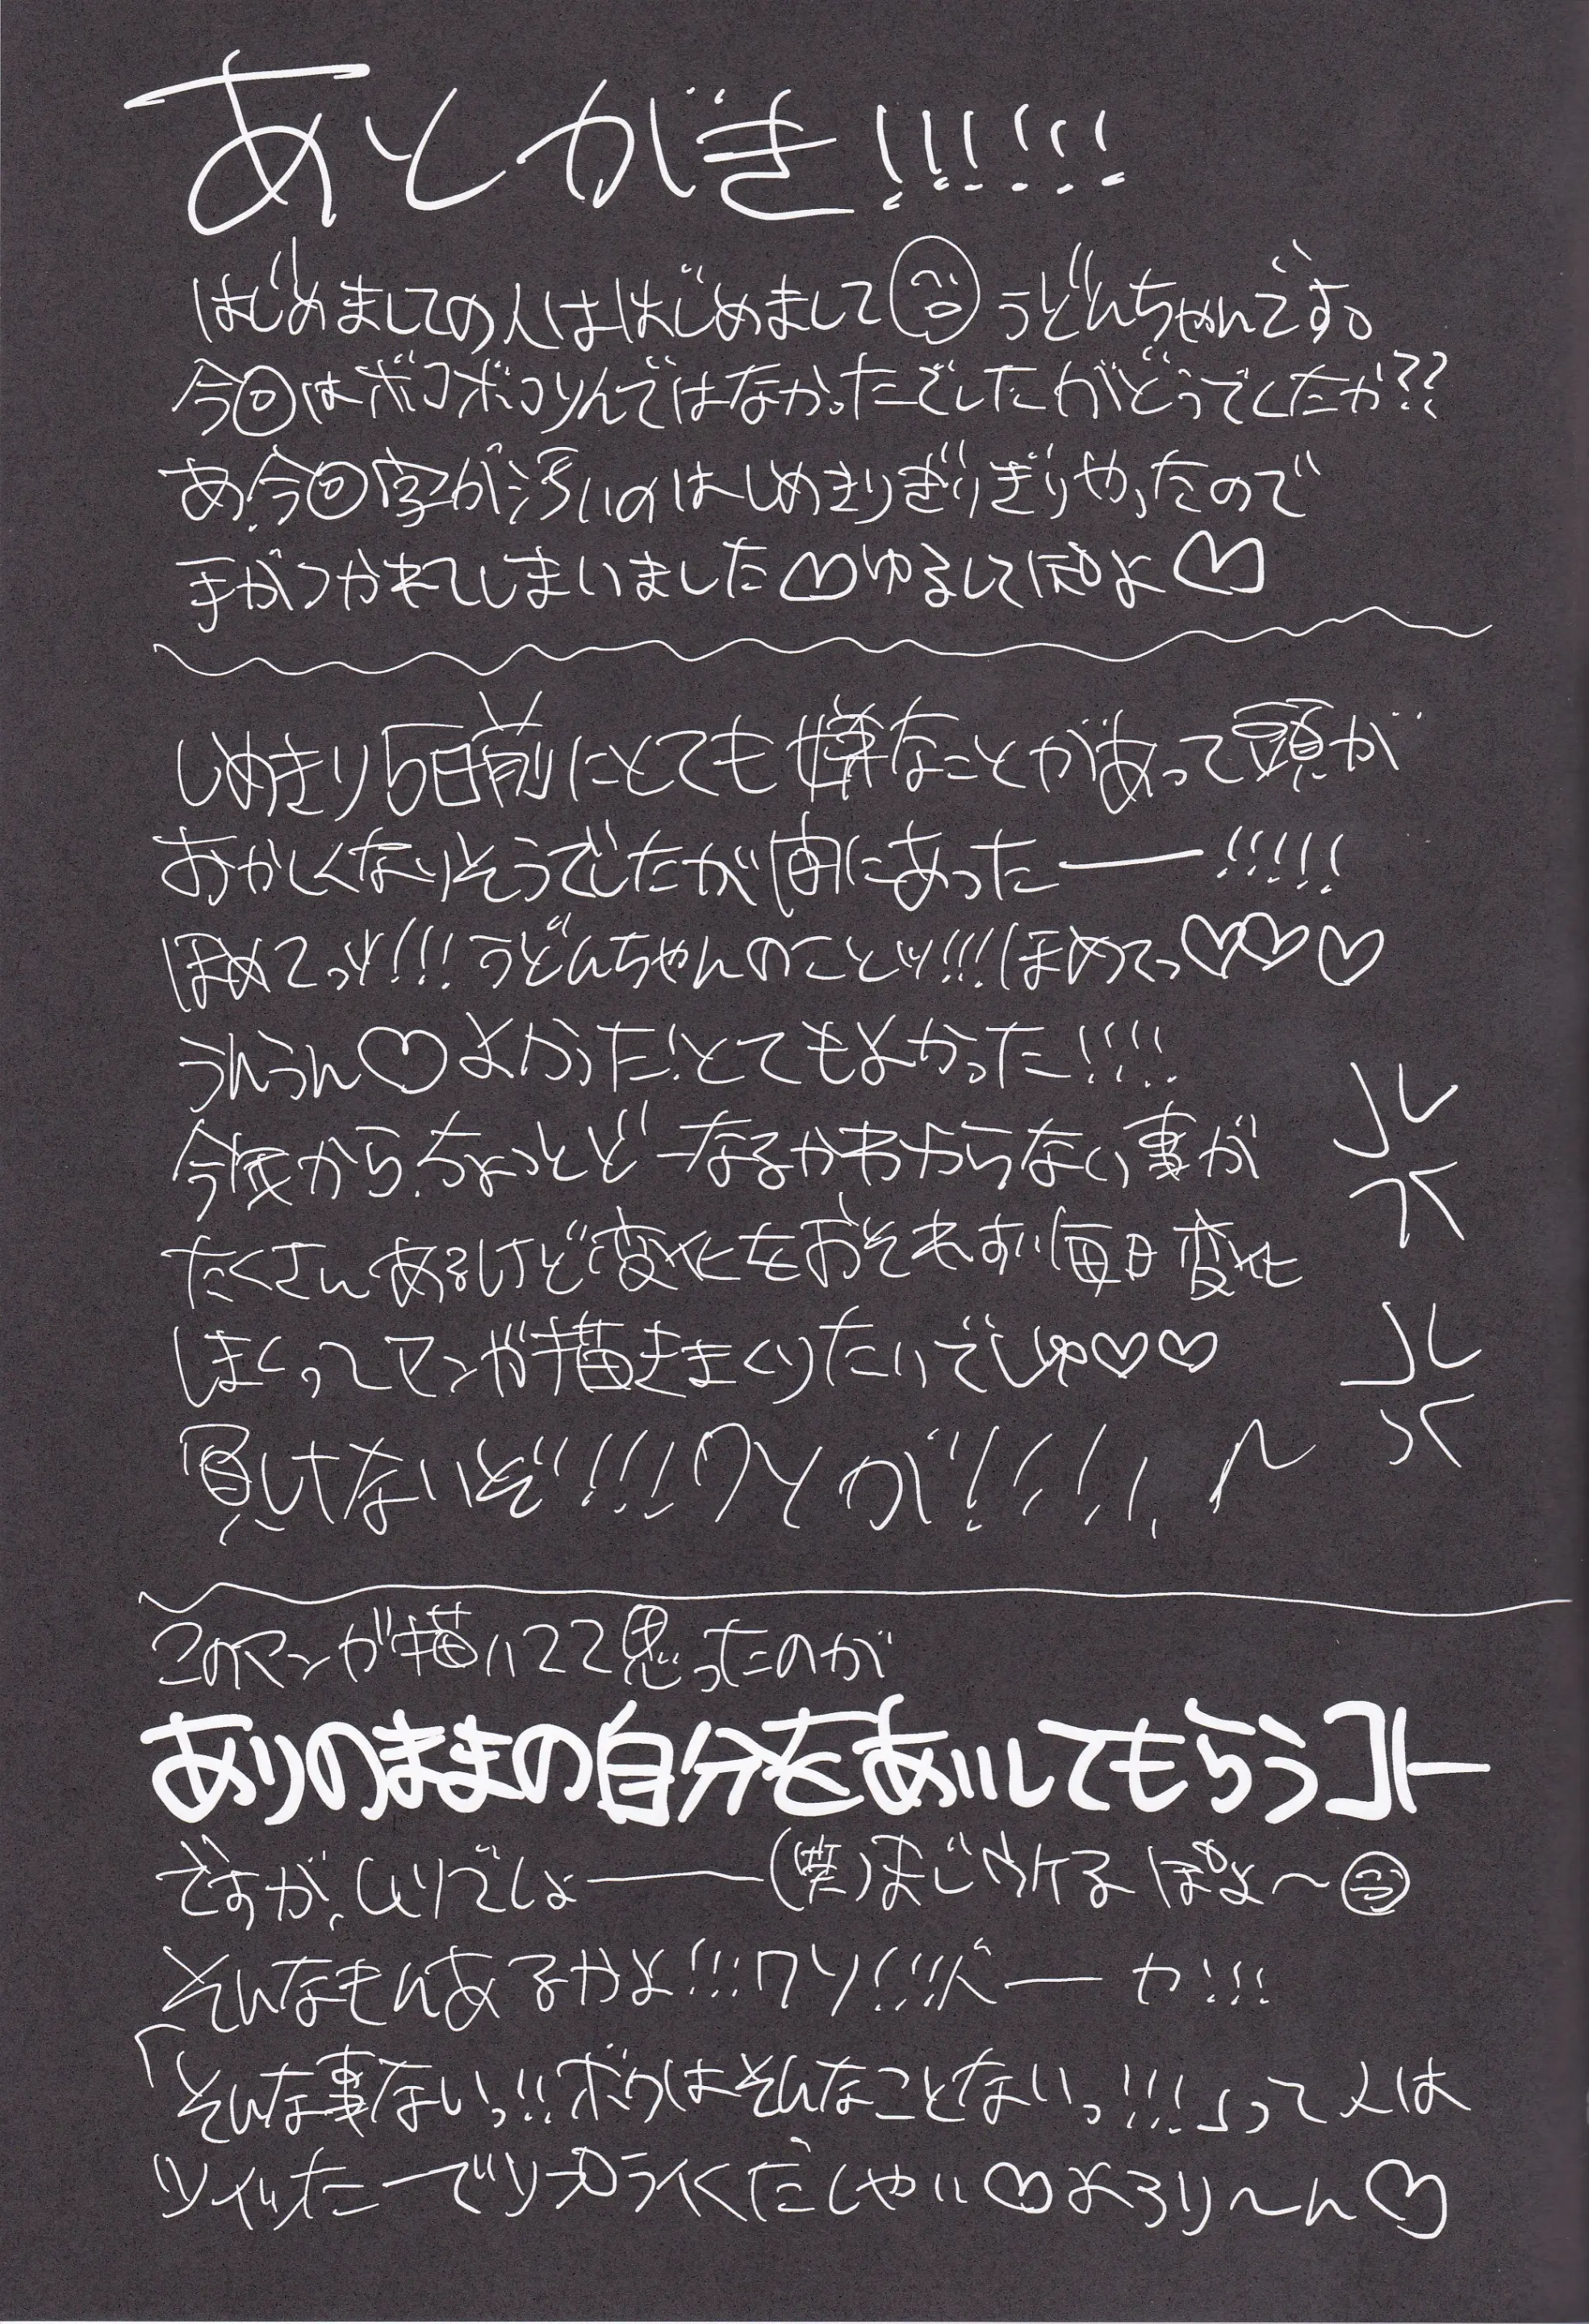 あとがき!!!!!!
はじめましての人ははじめまして うどんちゃんです。
今回はボコボコりんではなかったでしたがどうでしたか??
あ、今回字が汚いのはしめきりぎりぎりやったので
手がつかれてしまいました♡ゆるしてぽよ♡
しめきり5日前にとても嫌なことがあって頭が
おかしくなりそうでしたが間にあったー!!!!!
ほめてっッ!!!うどんちゃんのことッ!!!ほめてっ♡♡♡
うんうん♡よかった!とてもよかった!!!!
今後から、ちょっとどーなるかわからない事が
たくさんあるけど変化をおそれず毎日変化
しまくってマンガ描きまくりたいでしゅ♡♡
負けないぞ!!!!クソが!!!!!
このマンガ描いてて思ったのが
ありのままの自分をあいしてもらうコト
ですが、ムリでしょー(笑)まじウケるぽよ〜
そんなもんあるかよ!!!クソ!!!バーカ!!!
「そんな事ないっ!!ボクはそんなことないっ!!!」って人は
ツイッたーでリプライくだしゃい♡よろり〜ん♡